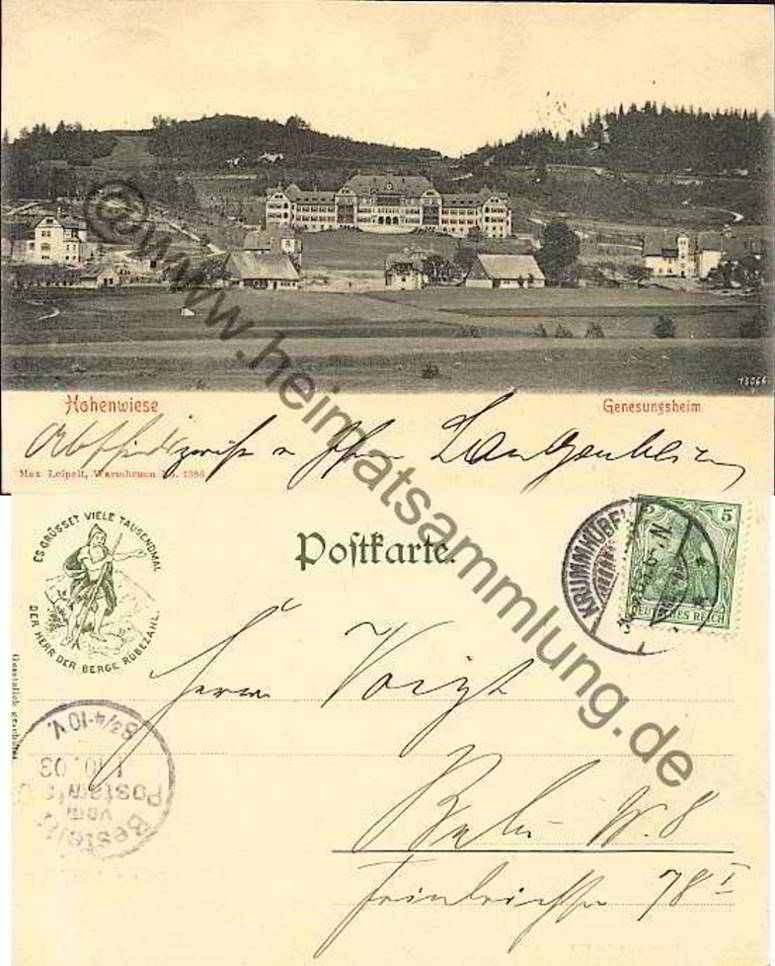 73066
Hohenwiese Genesungsheim
Max Leipelt, Warmbrunn No. 1386
© www.heimatsammlung.de
ES GRÜSSET VIELE TAUSENDMAL
DER HERR DER BERGE RÜBEZAHL.
Postkarte.
KRUMMHÜBEL
5
DEUTSCHES REICH
Gesetzlich geschützt
Herrn Voigt
Bestellt
vom
Postamte
1.10.03
8 3/4-10 V.
Berlin W. 8
Friedrichstr 78 I